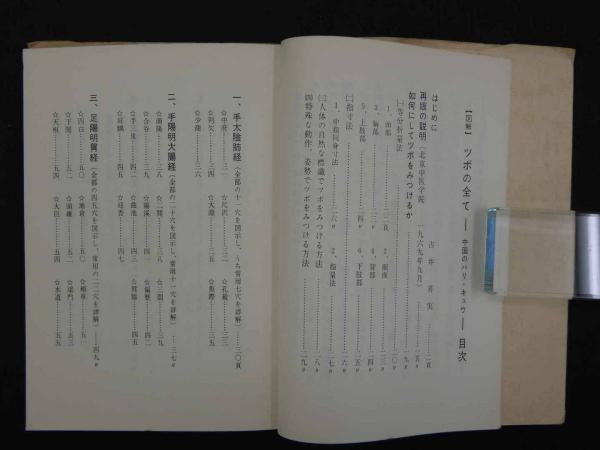 【図解】 ツボの全て ― 中国のハリ・キュウ ― 目次
はじめに 古井喜実
再版の説明（北京中医学院 一九六九年九月）
如何にしてツボをみつけるか
㈠等分折量法
1、面部
2、側面
3、胸部
4、背部
5、上肢部
6、下肢部
㈡指寸法
1、中指同身寸法
2、指量法
㈢人体の自然な標識でツボをみつける方法
㈣特殊な動作、姿勢でツボをみつける方法
一、手太陰肺経（全部の十一穴を図示し、うち常用七穴を詳解）…三〇頁
☆中府
☆尺沢
☆孔最
☆列欠……三四
☆太淵
☆魚際……三五
☆少商……三六
二、手陽明大腸経（全部の二十穴を図示し、常用十一穴を詳解）…三七〃
☆商陽
☆二間……三八
☆三間……三九
☆合谷
☆陽溪
☆偏歴……四二
☆手三里……四二
☆曲池……四三
☆臂臑……四四
☆肩髃……四五
☆迎香……四七
三、足陽明胃経（全部の四五穴を図示し、常用の二二穴を詳解）…四九〃
☆四白……五〇
☆地倉
☆頬車……五一
☆下関……五二
☆頭維
☆梁門……五三
☆天枢……五四
☆大巨……五四
☆水道……五五